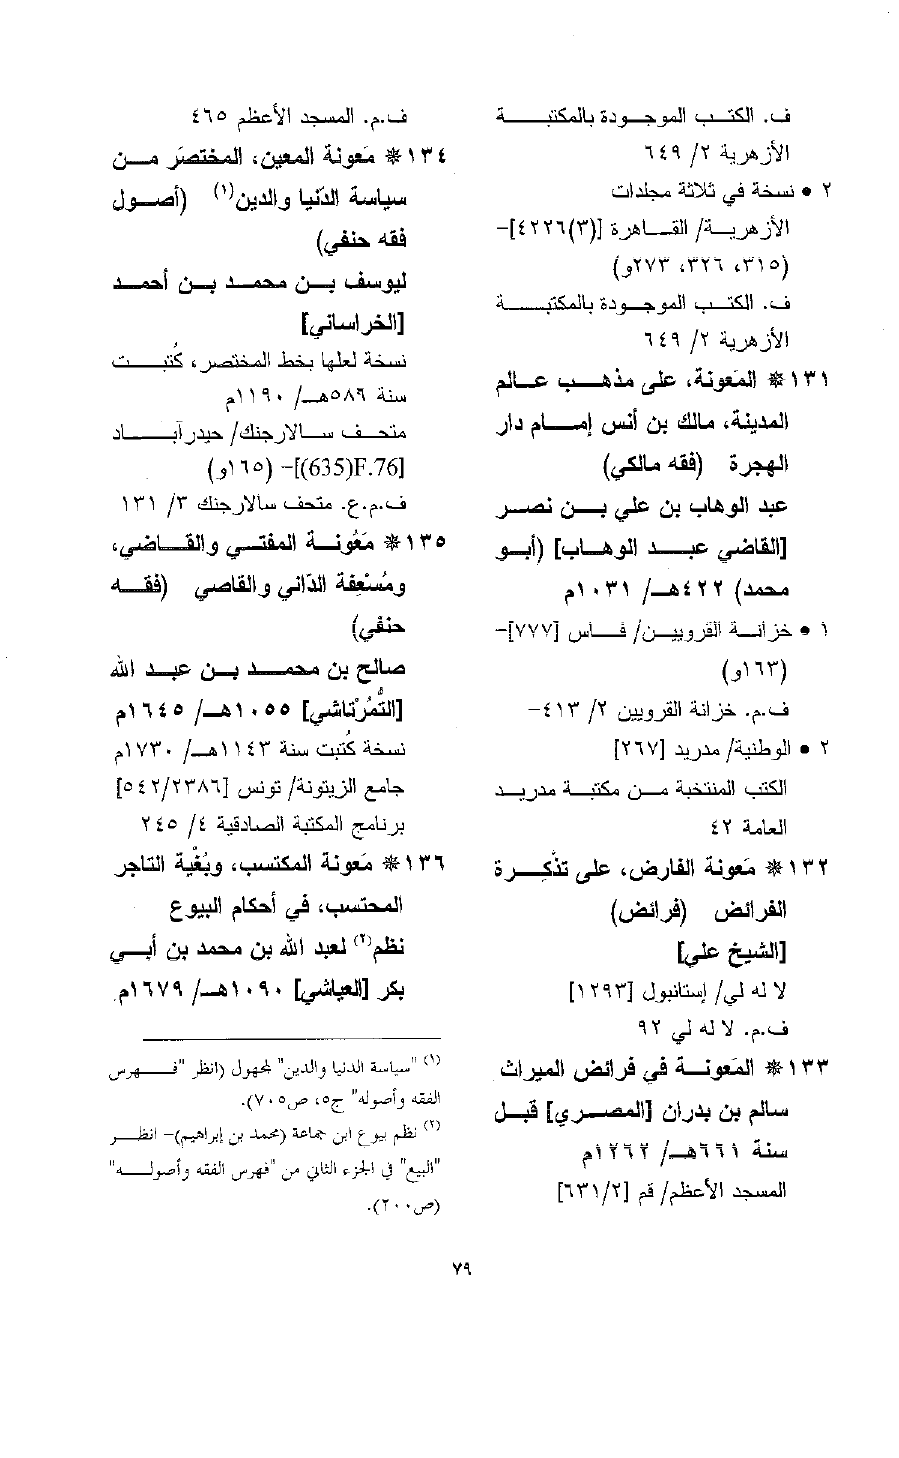 ف. الكتب الموجودة بالمكتبة
الأزهرية ٢/ ٦٤٩
٢ • نسخة في ثلاثة مجلدات
الأزهرية/ القاهرة [(٣)٤٢٢٦]-
(٣١٥، ٣٢٦، ٢٧٣و)
ف. الكتب الموجودة بالمكتبة
الأزهرية ٢/ ٦٤٩
١٣١ ※ المَعونة، على مذهب عالم
المدينة، مالك بن أنس إمام دار
الهجرة (فقه مالكي)
عبد الوهاب بن علي بن نصر
[القاضي عبد الوهاب] (أبو
محمد) ٤٢٢هـ/ ١٠٣١م
١ • خزانة القرويين/ فاس [٧٧٧]-
(١٦٣و)
ف.م. خزانة القرويين ٢/ ٤١٣-
٢ • الوطنية/ مدريد [٢٦٧]
الكتب المنتخبة من مكتبة مدريد
العامة ٤٢
١٣٢ ※ مَعونة الفارض، على تذْكِرة
الفرائض (فرائض)
[الشيخ علي]
لا له لي/ إستانبول [١٢٩٣]
ف.م. لا له لي ٩٢
١٣٣ ※ المَعونة في فرائض الميراث
سالم بن بدران [المصري] قبل
سنة ٦٦١هـ/ ١٢٦٢م
المسجد الأعظم/ قم [٦٣١/٢]
ف.م. المسجد الأعظم ٤٦٥
١٣٤ ※ مَعونة المعين، المختصَر من
سياسة الدّنيا والدين(١) (أصول
فقه حنفي)
ليوسف بن محمد بن أحمد
[الخراساني]
نسخة لعلها بخط المختصر، كُتبت
سنة ٥٨٦هـ/ ١١٩٠م
متحف سالارجنك/ حيدرآباد
[F.76(635)]- (١٦٥و)
ف.م.ع. متحف سالارجنك ٣/ ١٣١
١٣٥ ※ مَعُونة المفتي والقاضي،
ومُسْعِفة الدّاني والقاصي (فقه
حنفي)
صالح بن محمد بن عبد الله
[التُّمُرْتاشي] ١٠٥٥هـ/ ١٦٤٥م
نسخة كُتبت سنة ١١٤٣هـ/ ١٧٣٠م
جامع الزيتونة/ تونس [٥٤٢/٢٣٨٦]
برنامج المكتبة الصادقية ٤/ ٢٤٥
١٣٦ ※ مَعونة المكتسب، وبُغْية التاجر
المحتسب، في أحكام البيوع
نظم(٢) لعبد الله بن محمد بن أبي
بكر [العياشي] ١٠٩٠هـ/ ١٦٧٩م.
(١) "سياسة الدنيا والدين" لمجهول (انظر "فهرس
الفقه وأصوله" ج٥، ص٧٠٥).
(٢) نظم بيوع ابن جماعة (محمد بن إبراهيم)- انظر
"البيع" في الجزء الثاني من "فهرس الفقه وأصوله"
(ص٢٠٠).
٧٩